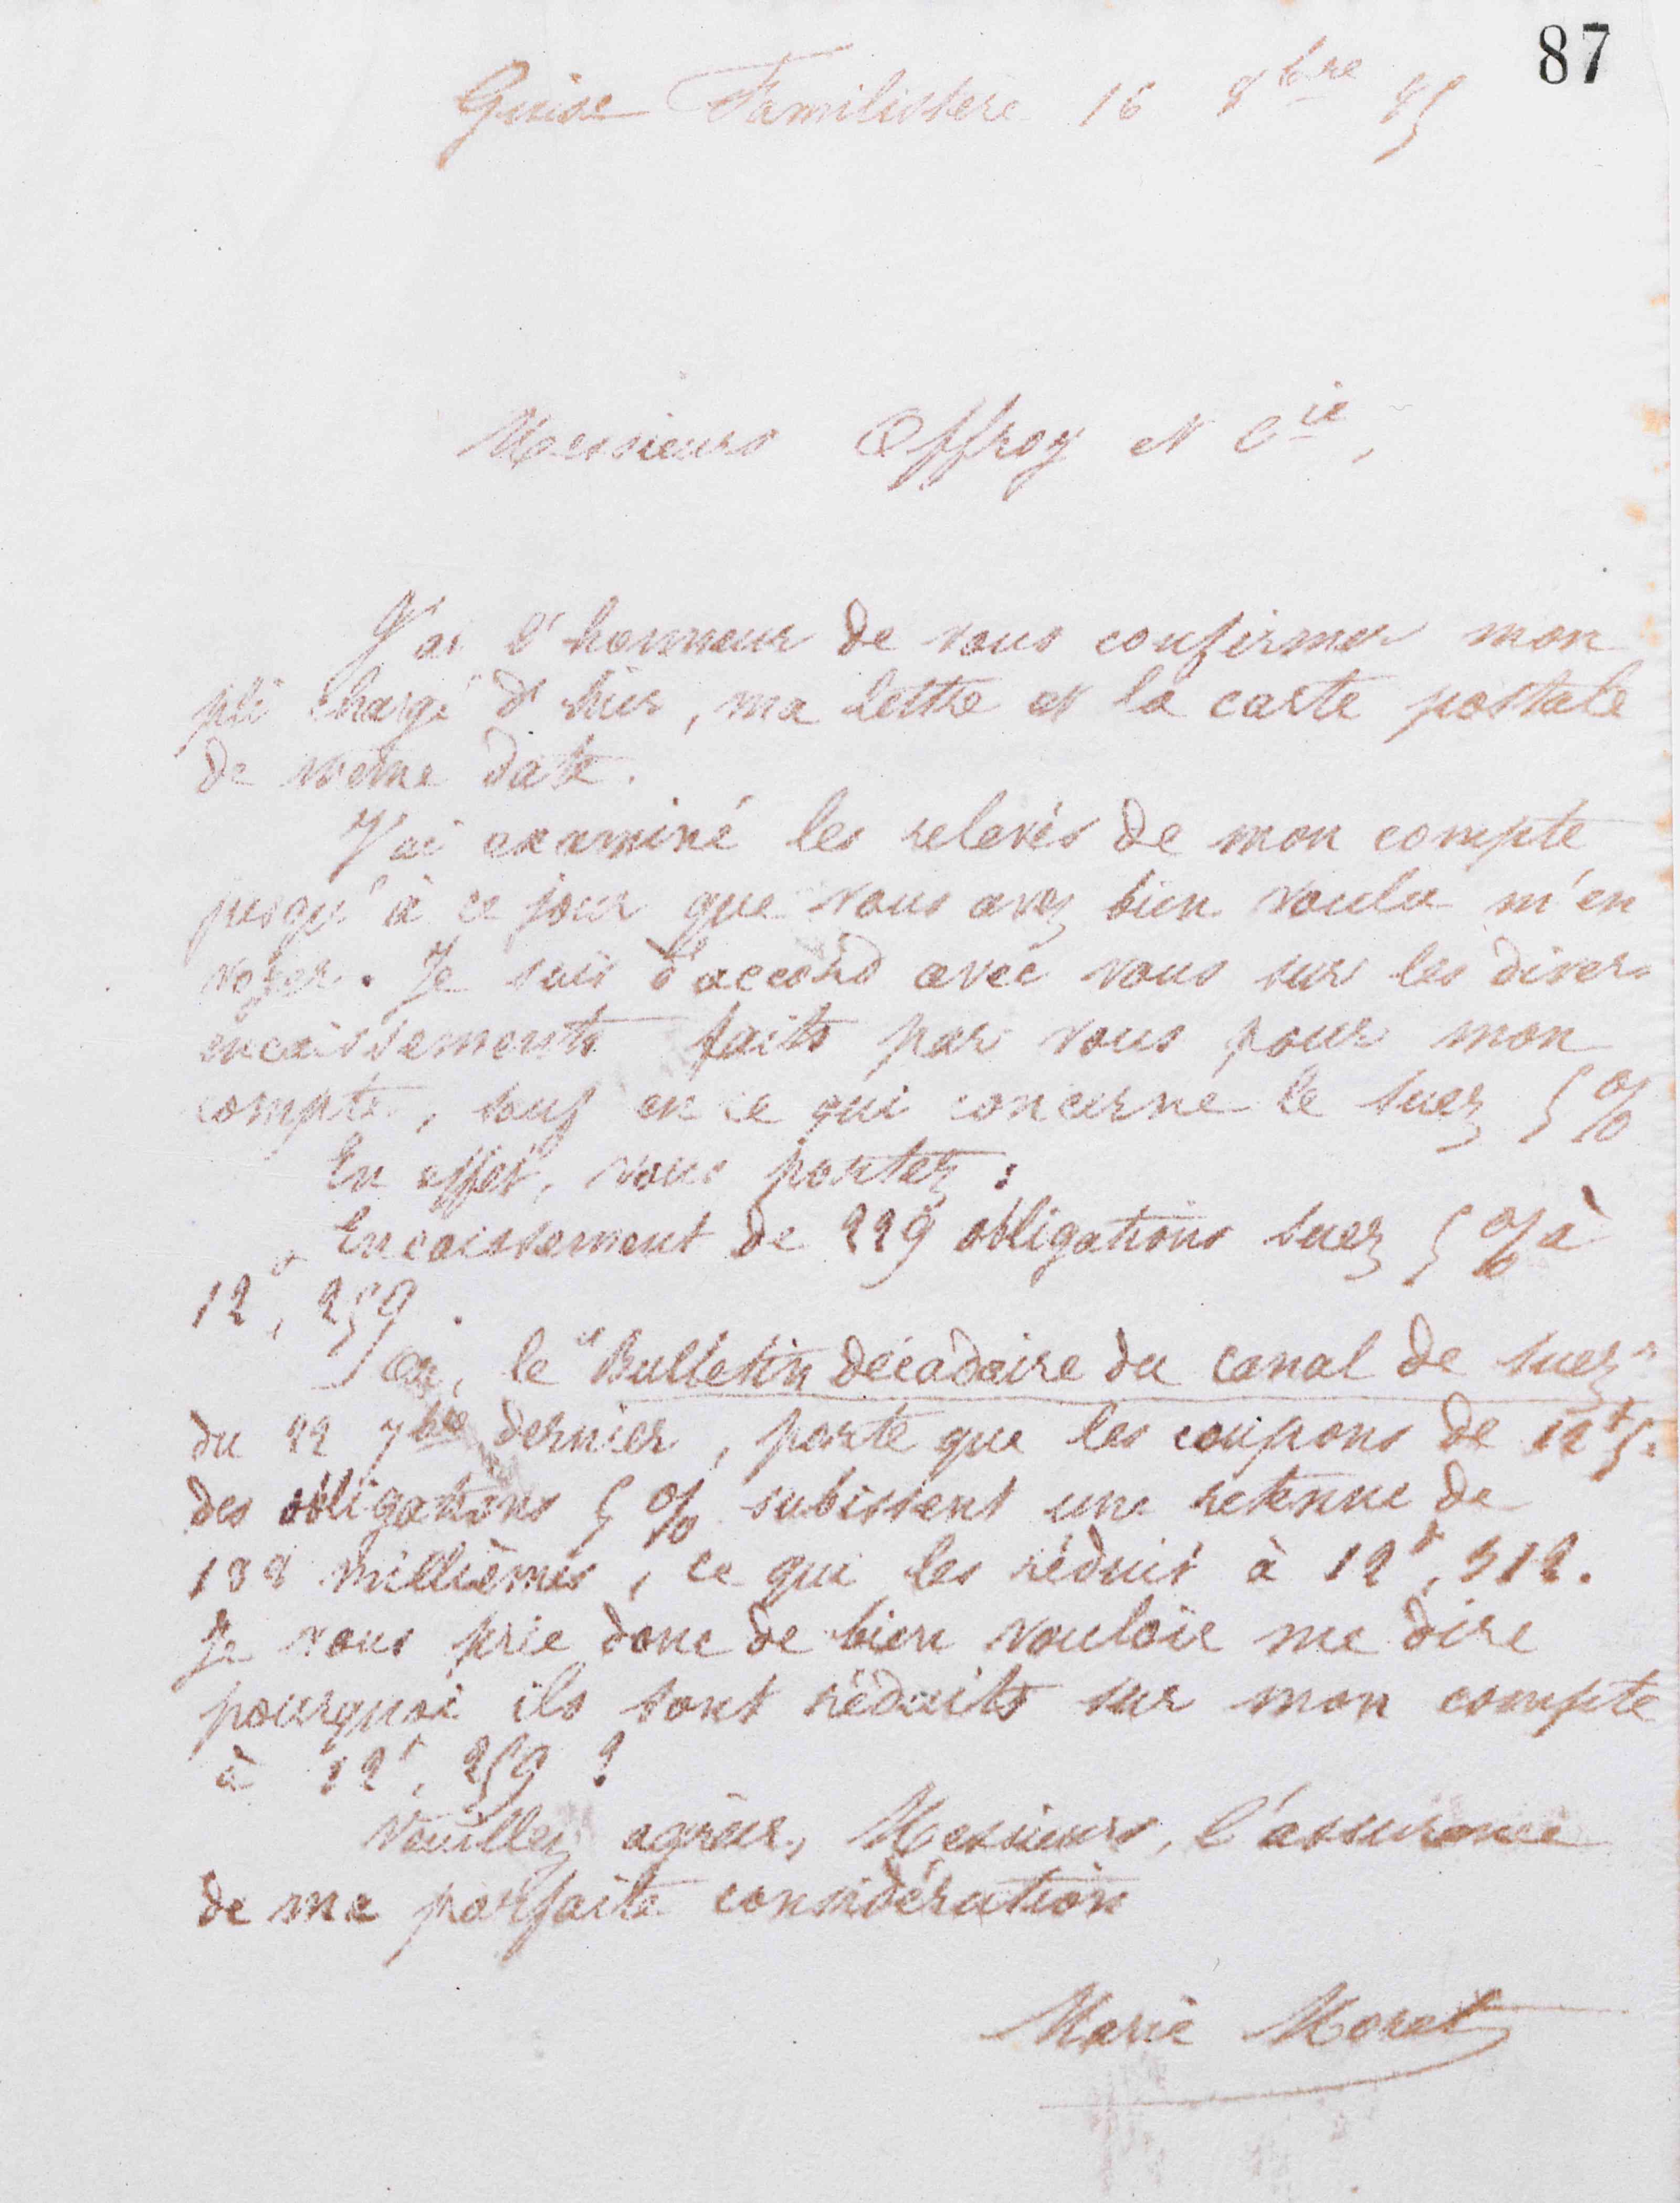 87
Guise Familistère 16 8bre 85
Messieurs Offroy et Cie,
J'ai l'honneur de vous confirmer mon
pli chargé d'hier, ma lettre et la carte postale
de même date.
J'ai examiné les relevés de mon compte
jusqu'à ce jour que vous avez bien voulu m'en
voyer. Je suis d'accord avec vous sur les divers
encaissements faits par vous pour mon
compte, sauf en ce qui concerne le Suez 5%
En effet, vous portez :
Encaissement de 229 obligations Suez 5% à
12f,259.
Or, le "Bulletin décadaire du canal de Suez"
du 22 7bre dernier, porte que les coupons de 12f5.
des obligations 5% subissent une retenue de
188 millièmes, ce qui les réduit à 12f,312.
Je vous prie donc de bien vouloir me dire
pourquoi ils sont réduits sur mon compte
à 12f,259 ?
Veuillez agréer, Messieurs, l'assurance
de ma parfaite considération
Marie Moret